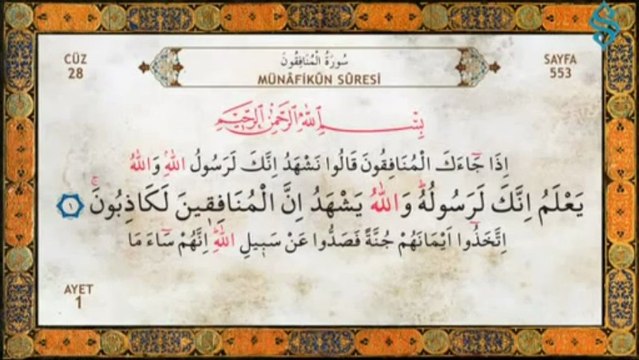 CÜZ
28
سُورَةُ الْمُنَافِقُونَ
MÜNÂFİKÛN SÛRESİ
SAYFA
553
بِسْمِ اللّٰهِ الرَّحْمٰنِ الرَّحِيمِ
اِذَا جَٓاءَكَ الْمُنَافِقُونَ قَالُوا نَشْهَدُ اِنَّكَ لَرَسُولُ اللّٰهِۢ وَاللّٰهُ
يَعْلَمُ اِنَّكَ لَرَسُولُهُۜ وَاللّٰهُ يَشْهَدُ اِنَّ الْمُنَافِقٖينَ لَكَاذِبُونَۚ ١
اِتَّخَذُٓوا اَيْمَانَهُمْ جُنَّةً فَصَدُّوا عَنْ سَبٖيلِ اللّٰهِۜ اِنَّهُمْ سَٓاءَ مَا
AYET
1